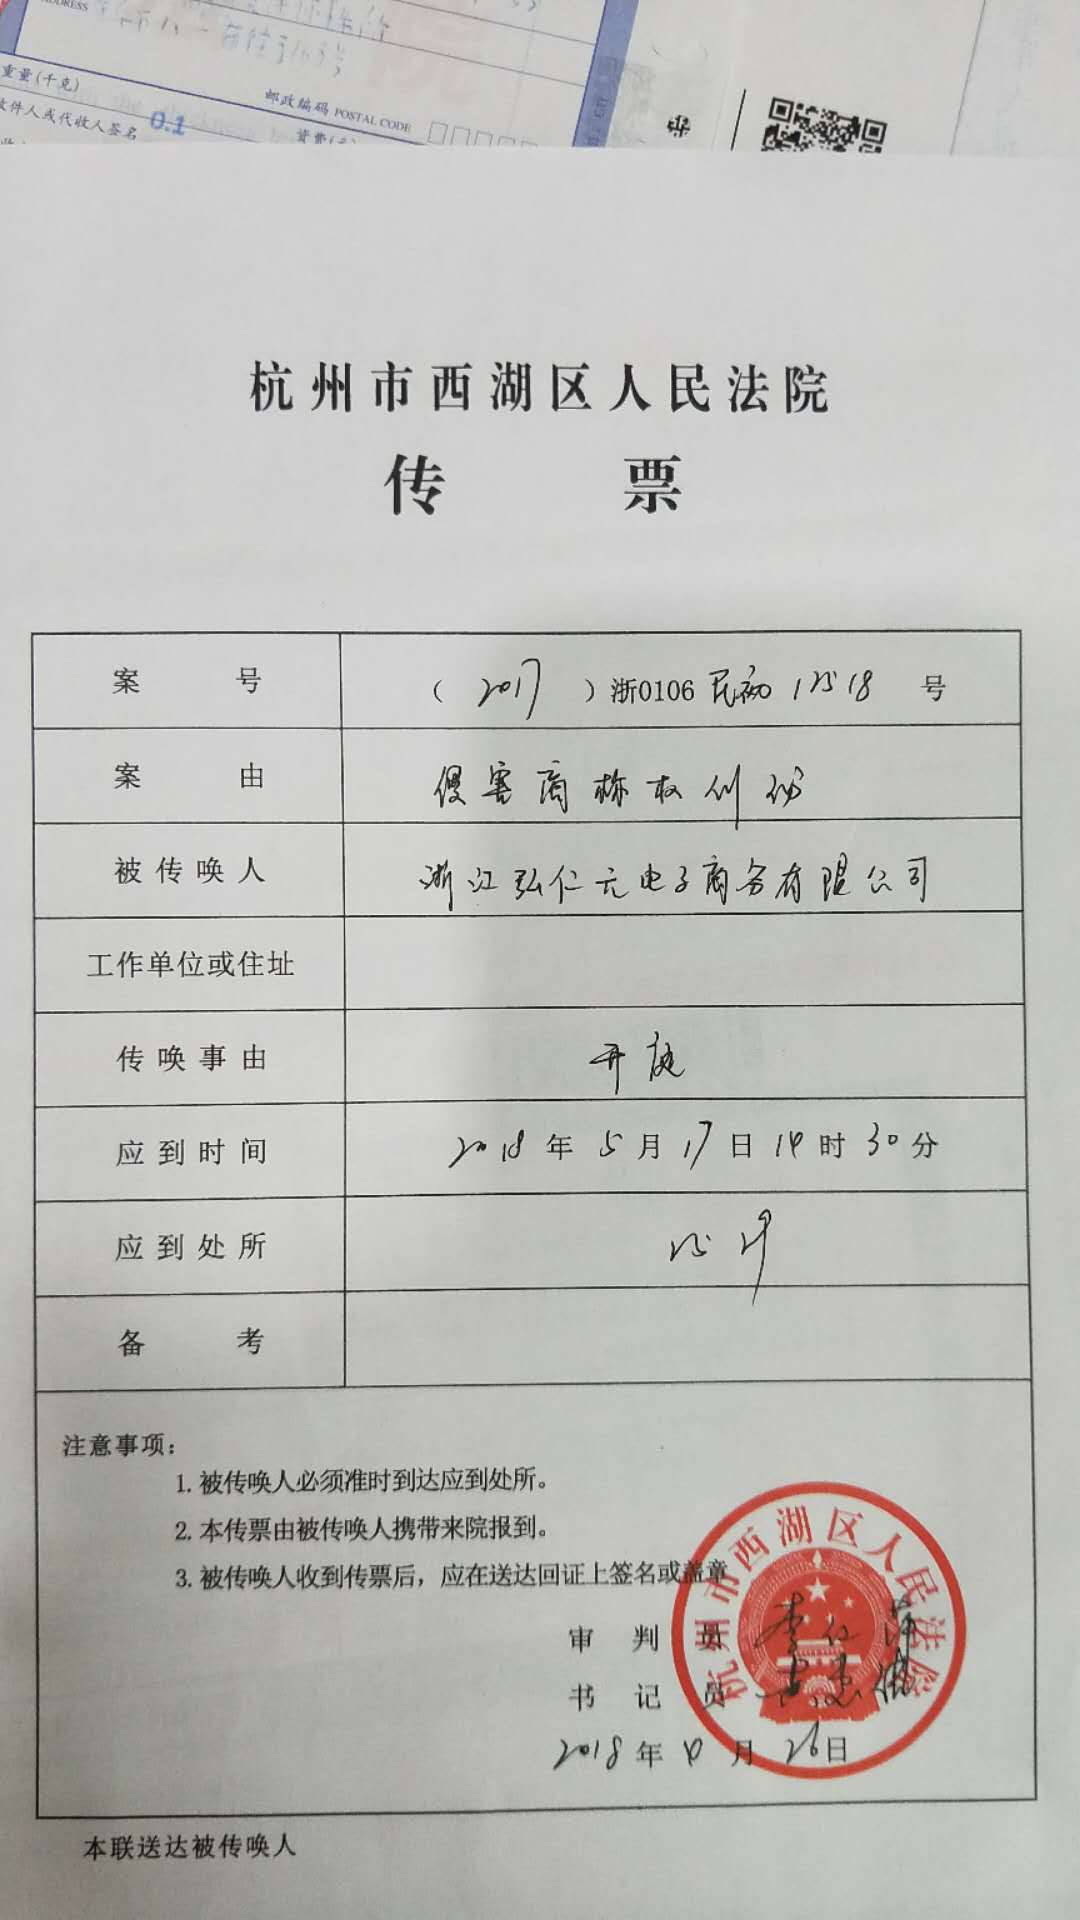 ADDRESS
重量(千克)
0.1
邮政编码 POSTAL CODE
收件人或代收人签名
资费(元)
杭州市西湖区人民法院
传票
案号 (2017)浙0106民初12518号
案由 侵害商标权纠纷
被传唤人 浙江弘仁元电子商务有限公司
工作单位或住址
传唤事由 开庭
应到时间 2018年5月17日14时30分
应到处所
备考
注意事项:
1. 被传唤人必须准时到达应到处所。
2. 本传票由被传唤人携带来院报到。
3. 被传唤人收到传票后,应在送达回证上签名或盖章
杭州市西湖区人民法院
审判员 李仁萍
书记员
2018年4月26日
本联送达被传唤人